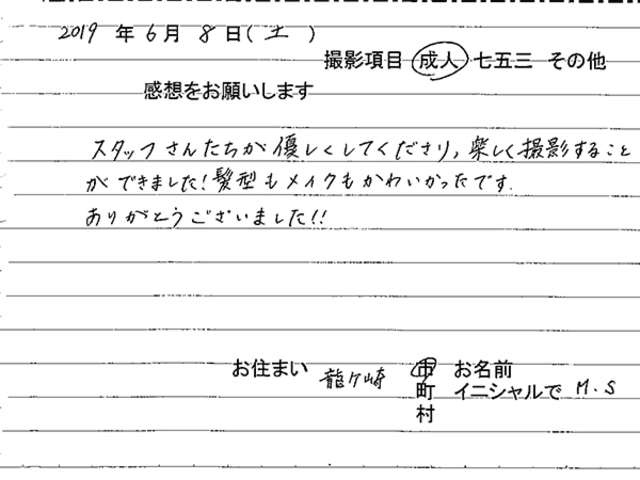 2019 年 6 月 8 日(土)
撮影項目 成人 七五三 その他
感想をお願いします
スタッフさんたちが優しくしてくださり,楽しく撮影すること
ができました!髪型もメイクもかわいかったです.
ありがとうございました!!
お住まい 龍ケ崎 市 お名前
町 イニシャルで M.S
村